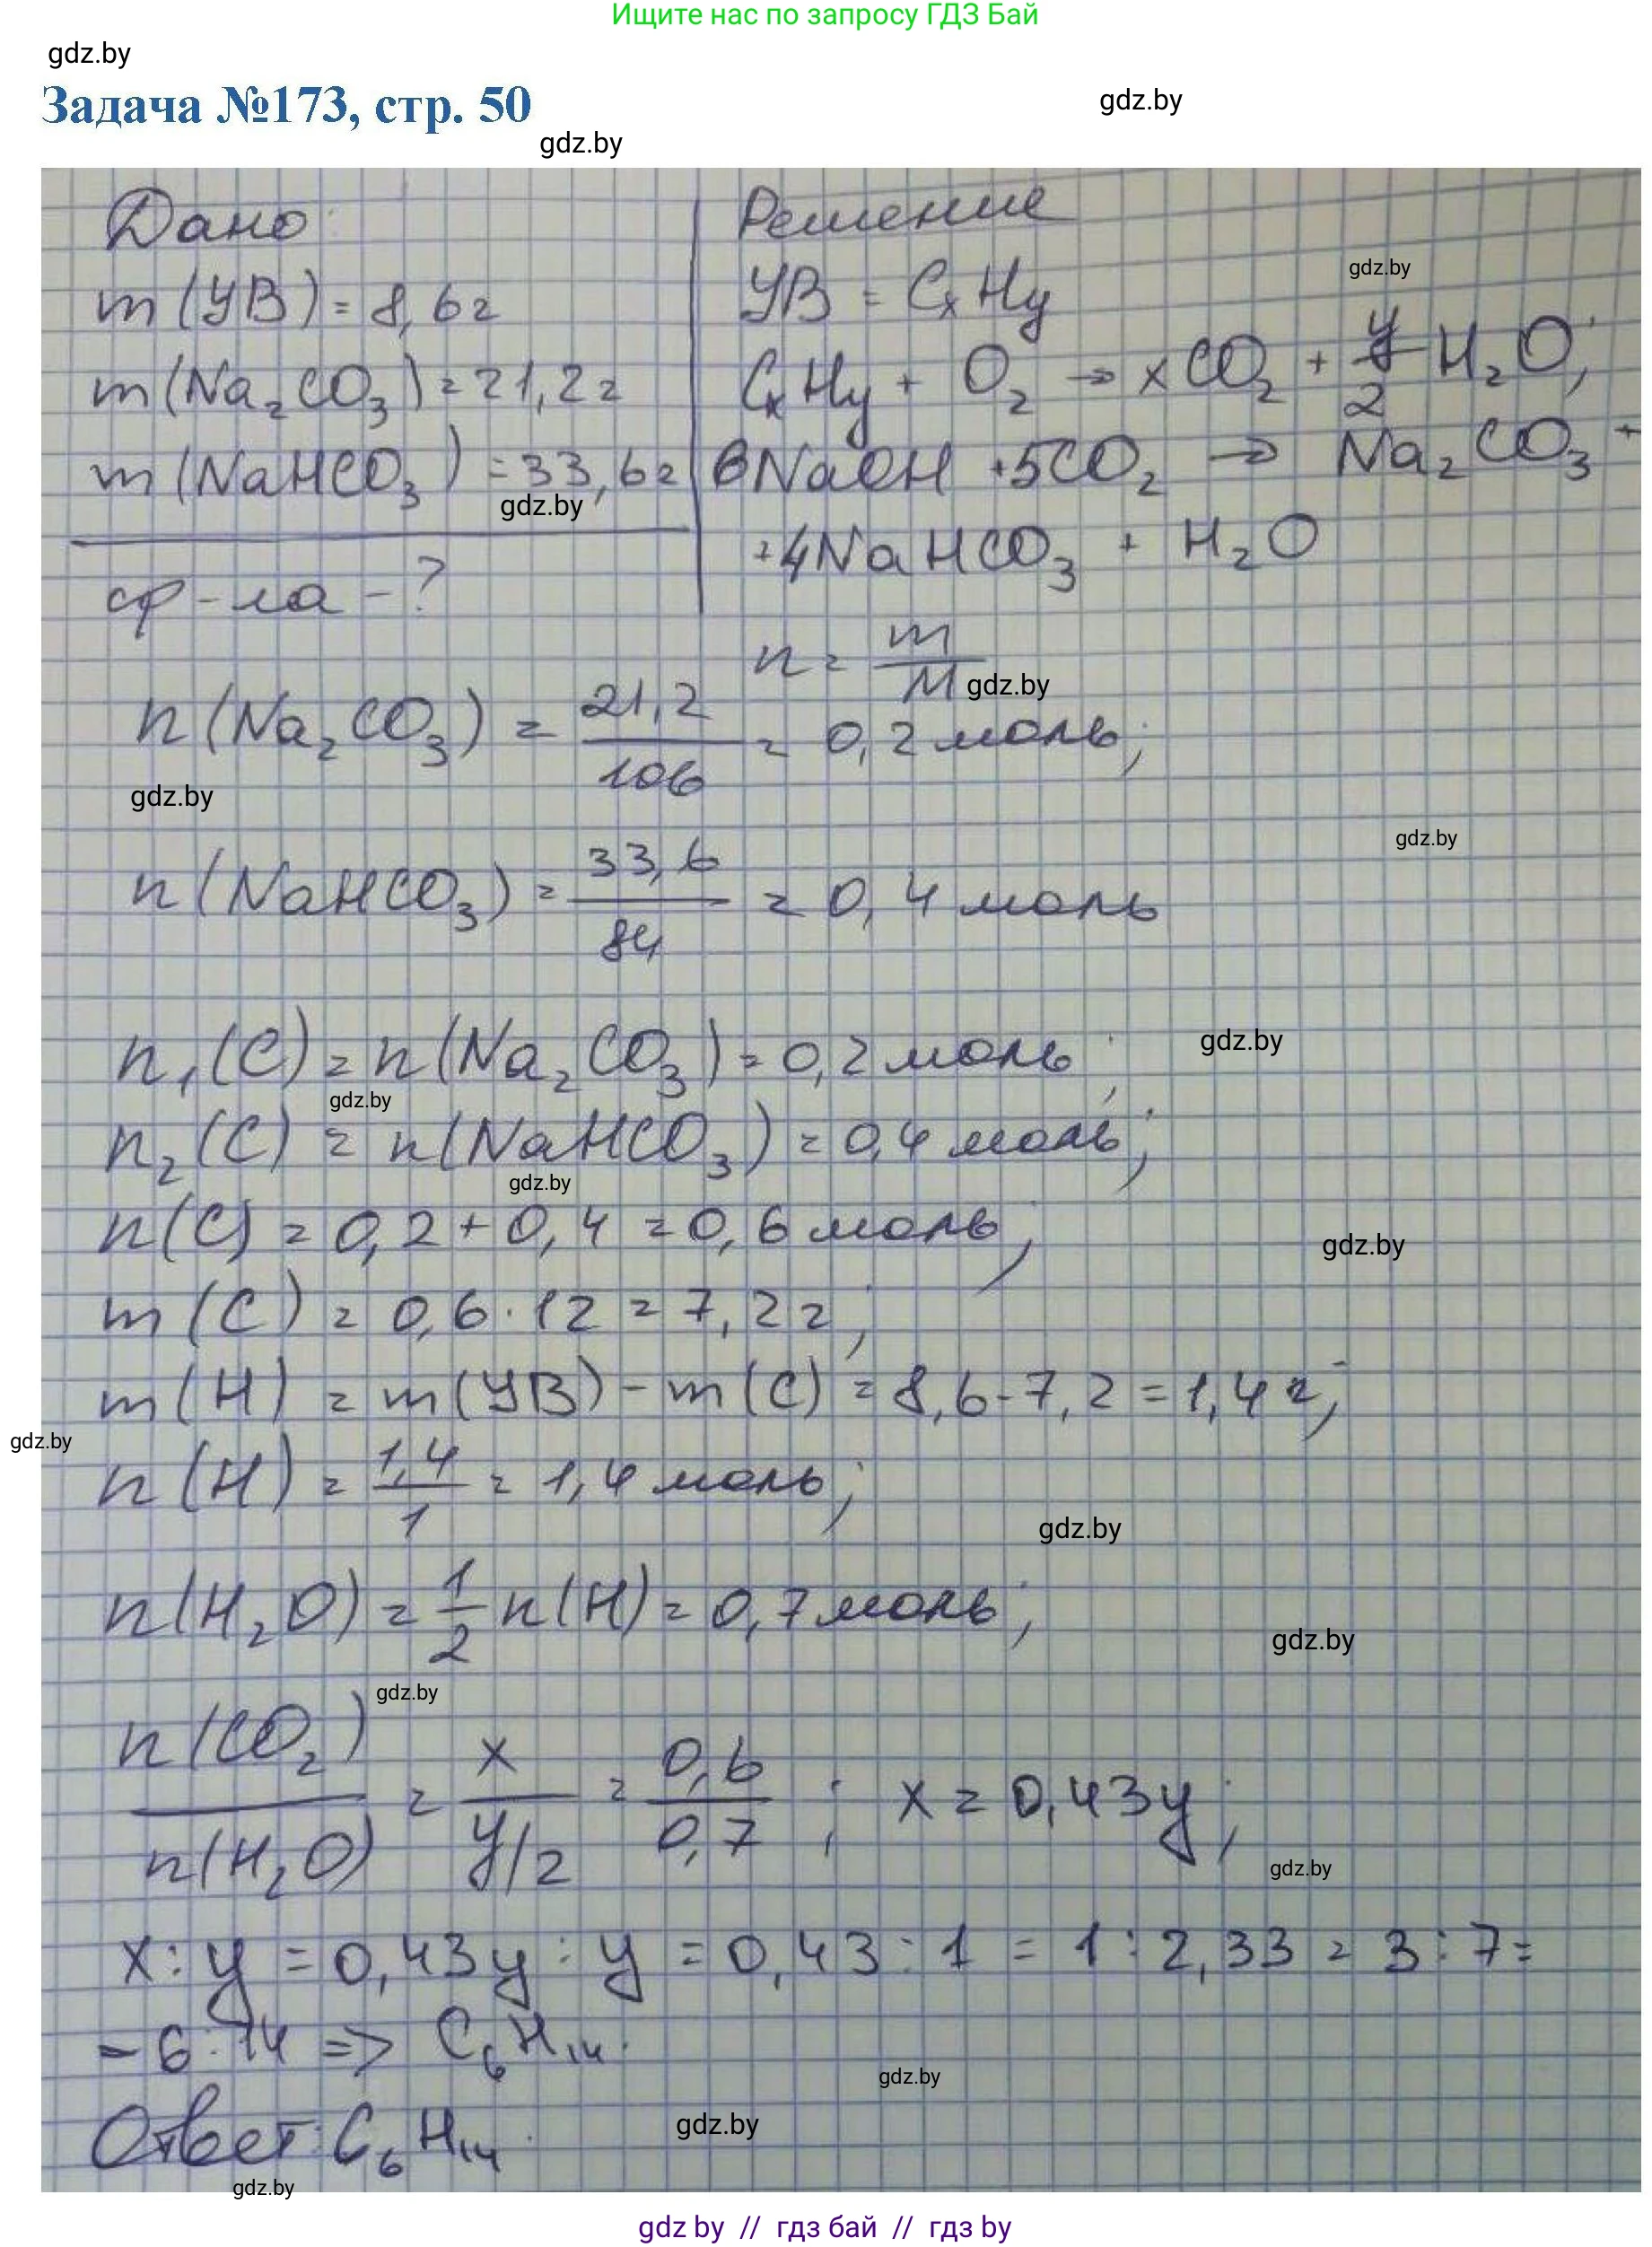 Ищите нас по запросу ГДЗ Бай
gdz.by
Задача №173, стр. 50
gdz.by
gdz.by
Дано:
m(УВ) = 8,6г
m(Na₂CO₃) = 21,2г
m(NaHCO₃) = 33,6г
gdz.by
ф-ла - ?
Решение
УВ = CₓHy
gdz.by
CₓHy + O₂ → xCO₂ + y/2 H₂O;
6NaOH + 5CO₂ → Na₂CO₃ +
+ 4NaHCO₃ + H₂O
n = m/M
gdz.by
n(Na₂CO₃) = 21,2/106 = 0,2 моль;
gdz.by
gdz.by
n(NaHCO₃) = 33,6/84 = 0,4 моль
gdz.by
n₁(C) = n(Na₂CO₃) = 0,2 моль;
gdz.by
n₂(C) = n(NaHCO₃) = 0,4 моль;
gdz.by
n(C) = 0,2 + 0,4 = 0,6 моль;
gdz.by
m(C) = 0,6 · 12 = 7,2г;
m(H) = m(УВ) - m(C) = 8,6 - 7,2 = 1,4г;
gdz.by
n(H) = 1,4/1 = 1,4 моль;
gdz.by
n(H₂O) = 1/2 n(H) = 0,7 моль;
gdz.by
gdz.by
n(CO₂)/n(H₂O) = x/y/2 = 0,6/0,7; x = 0,43y;
gdz.by
x : y = 0,43y : y = 0,43 : 1 = 1 : 2,33 = 3 : 7 =
= 6 : 14 => C₆H₁₄.
gdz.by
Ответ: C₆H₁₄.
gdz.by
gdz.by
gdz by // гдз бай // гдз by